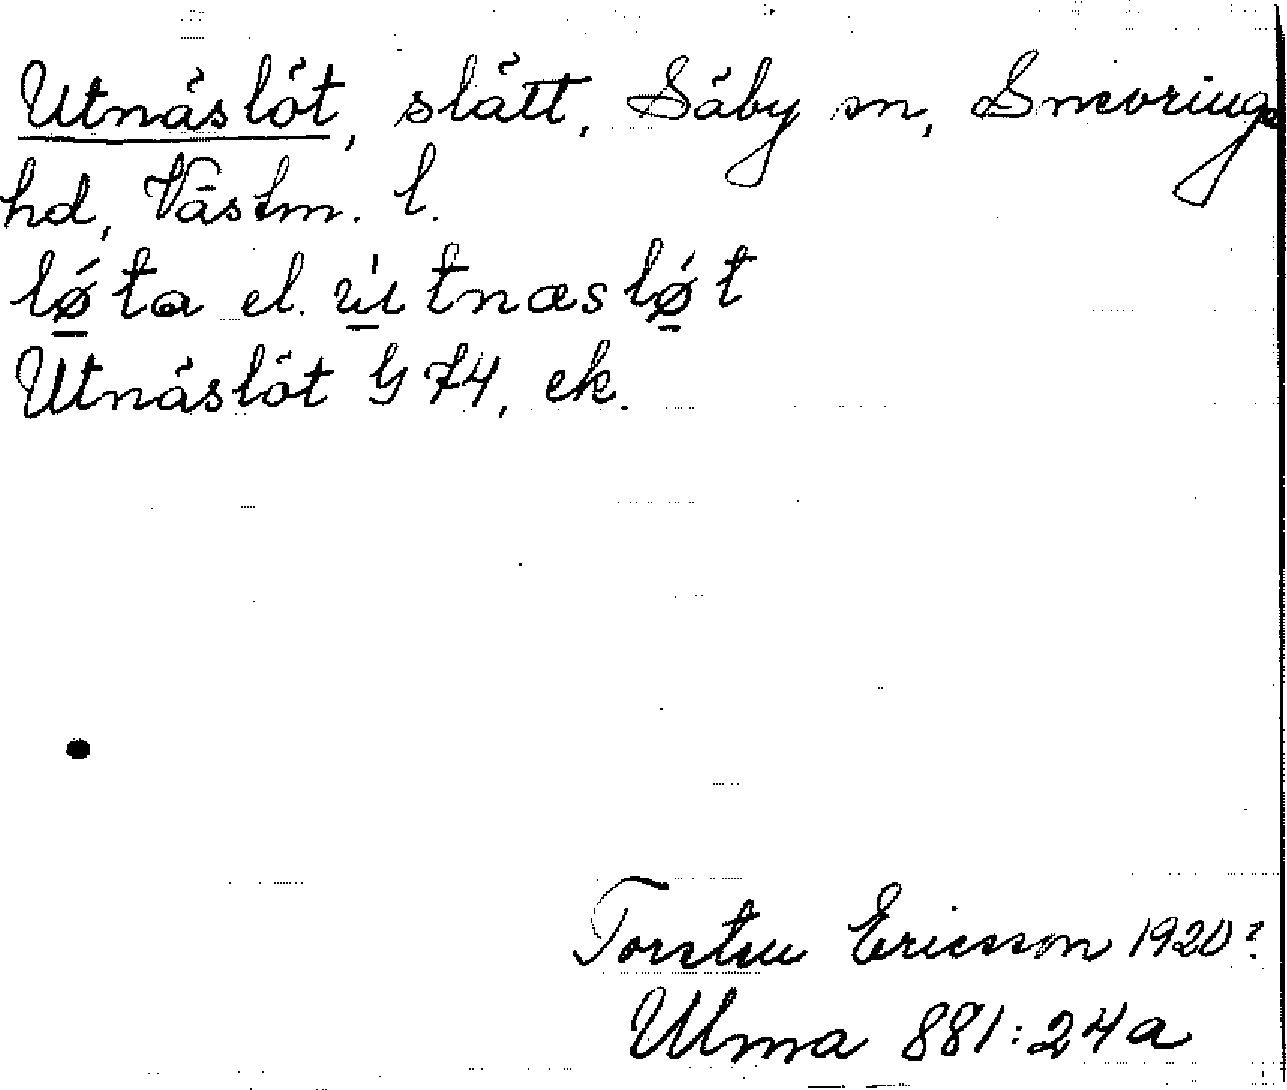 Utnäslöt, slått, Säby sn, Snevrings
hd, Västm. l.
lǿta el. útnæslǿt
Utnäslöt G 74, ek.
Torsten Ericsson 1920?
Ulma 881:24a